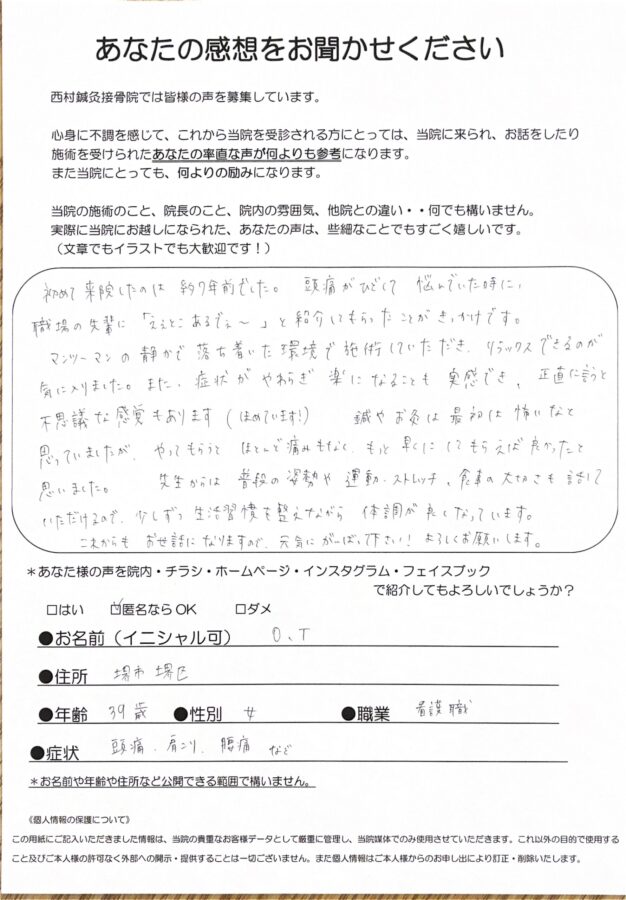 あなたの感想をお聞かせください
西村鍼灸接骨院では皆様の声を募集しています。
心身に不調を感じて、これから当院を受診される方にとっては、当院に来られ、お話をしたり
施術を受けられたあなたの率直な声が何よりも参考になります。
また当院にとっても、何よりの励みになります。
当院の施術のこと、院長のこと、院内の雰囲気、他院との違い・・何でも構いません。
実際に当院にお越しになられた、あなたの声は、些細なことでもすごく嬉しいです。
（文章でもイラストでも大歓迎です！）
初めて来院したのは約7年前でした。頭痛がひどくて悩んでいた時に、
職場の先輩に「ええとこあるでぇ～」と紹介してもらったことがきっかけです。
マンツーマンの静かで落ち着いた環境で施術していただき、リラックスできるのが
気に入りました。また、症状がやわらぎ楽になることも実感でき、正直に言うと
不思議な感覚もあります（ほめています!）　鍼やお灸は最初は怖いなと
思っていましたが、やってもらうとほとんど痛みもなく、もっと早くにしてもらえば良かったと
思いました。　先生からは普段の姿勢や運動・ストレッチ、食事の大切さも話して
いただけるので、少しずつ生活習慣も整えながら体調が良くなっています。
これからもお世話になりますので、元気にがんばって下さい！よろしくお願いします。
＊あなた様の声を院内・チラシ・ホームページ・インスタグラム・フェイスブック
で紹介してもよろしいでしょうか？
□はい　☑匿名なら OK　□ダメ
●お名前（イニシャル可）　O、T
●住所　堺市 堺区
●年齢　39歳　●性別　女　●職業　看護職
●症状　頭痛、肩こり、腰痛 など
＊お名前や年齢や住所など公開できる範囲で構いません。
《個人情報の保護について》
この用紙にご記入いただきました情報は、当院の貴重なお客様データとして厳重に管理し、当院媒体でのみ使用させていただきます。これ以外の目的で使用する
こと及びご本人様の許可なく外部への開示・提供することは一切ございません。また個人情報はご本人様からのお申し出により訂正・削除いたします。